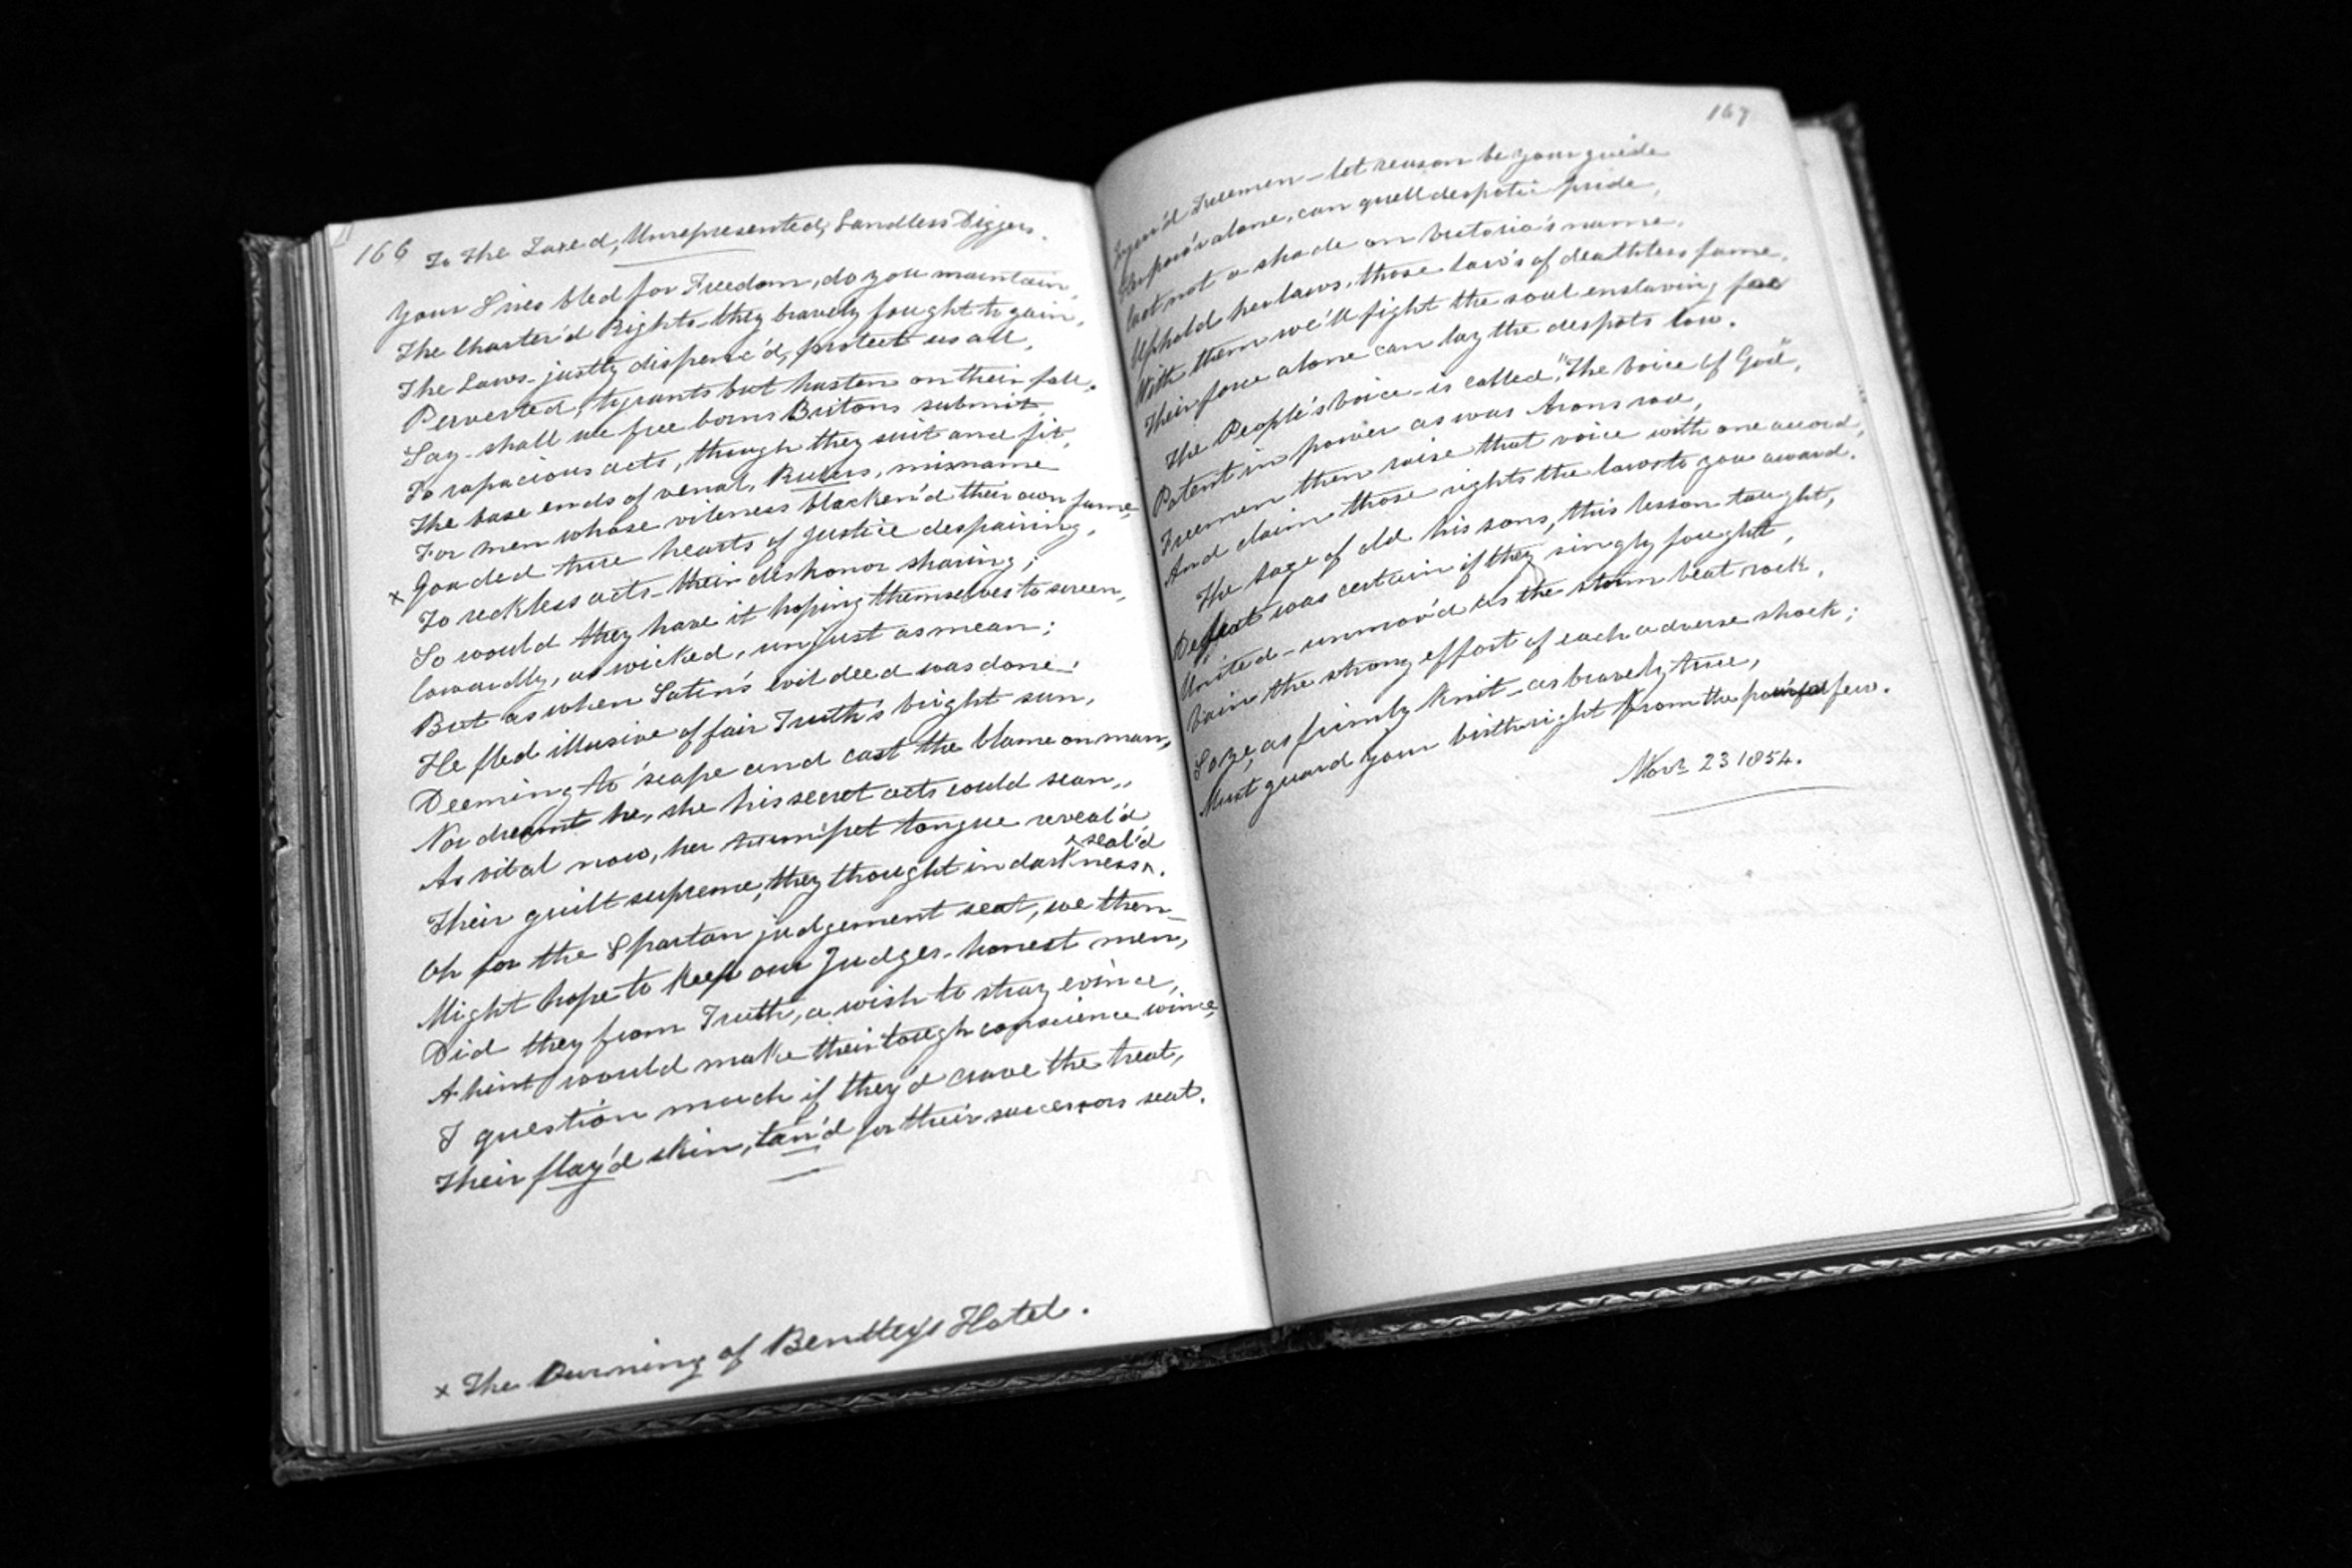 166 To The Taxed, Unrepresented, Landless Diggers.
Your Sires bled for Freedom, do you maintain,
The Charter'd Rights they bravely fought to gain,
The Laws justly dispenc'd, protect us all,
Perverted, tyrants but hasten on their fall.
Say - shall we free born Britons submit
To rapacious acts, though they suit and fit,
The base ends of venal, Rulers, misname
For men whose vileness blacken'd their own fame,
x Goaded true hearts of justice despairing,
To reckless acts - their dishonor sharing;
So would they have it hoping themselves to screen,
Cowardly, as wicked, unjust as mean;
But as when Satin's evil deed was done,
He fled illusive of fair Truth's bright sun,
Deeming to 'scape and cast the blame on man,
Nor dreamt he, she his secret acts could scan,
As vital now, her trumpet tongue reveal'd
Their guilt supreme, they thought in darkness ^ seal'd.
Oh for the Spartan judgement seat, we then
Might hope to keep our Judges - honest men,
Did they from Truth, a wish to stray evince,
A hint would make their tough conscience wince,
I question much if they'd crave the treat,
Their flay'd skin, tan'd for their successors seat.
x The Burning of Bentleys Hotel.
167
Freemen - let reason be your guide
alone, can quell despotic pride,
Cast not a shade on Victoria's name,
Uphold her laws, those laws of deathless fame.
With them we'll fight the soul enslaving foe
Their force alone can lay the despots low.
The People's voice - is called, "The Voice of God",
Potent in power as was Arons rod,
Freemen then raise that voice with one accord,
And claim those rights the laws to you award.
The sage of old his sons, this lesson taught,
Defeat was certain if they singly fought,
United - unmov'd as the storm beat rock,
Vain the strong effort of each adverse shock;
So ye, as firmly knit - as bravely true,
Must guard your birthright from the pow'rful few.
Novr 23 1854.